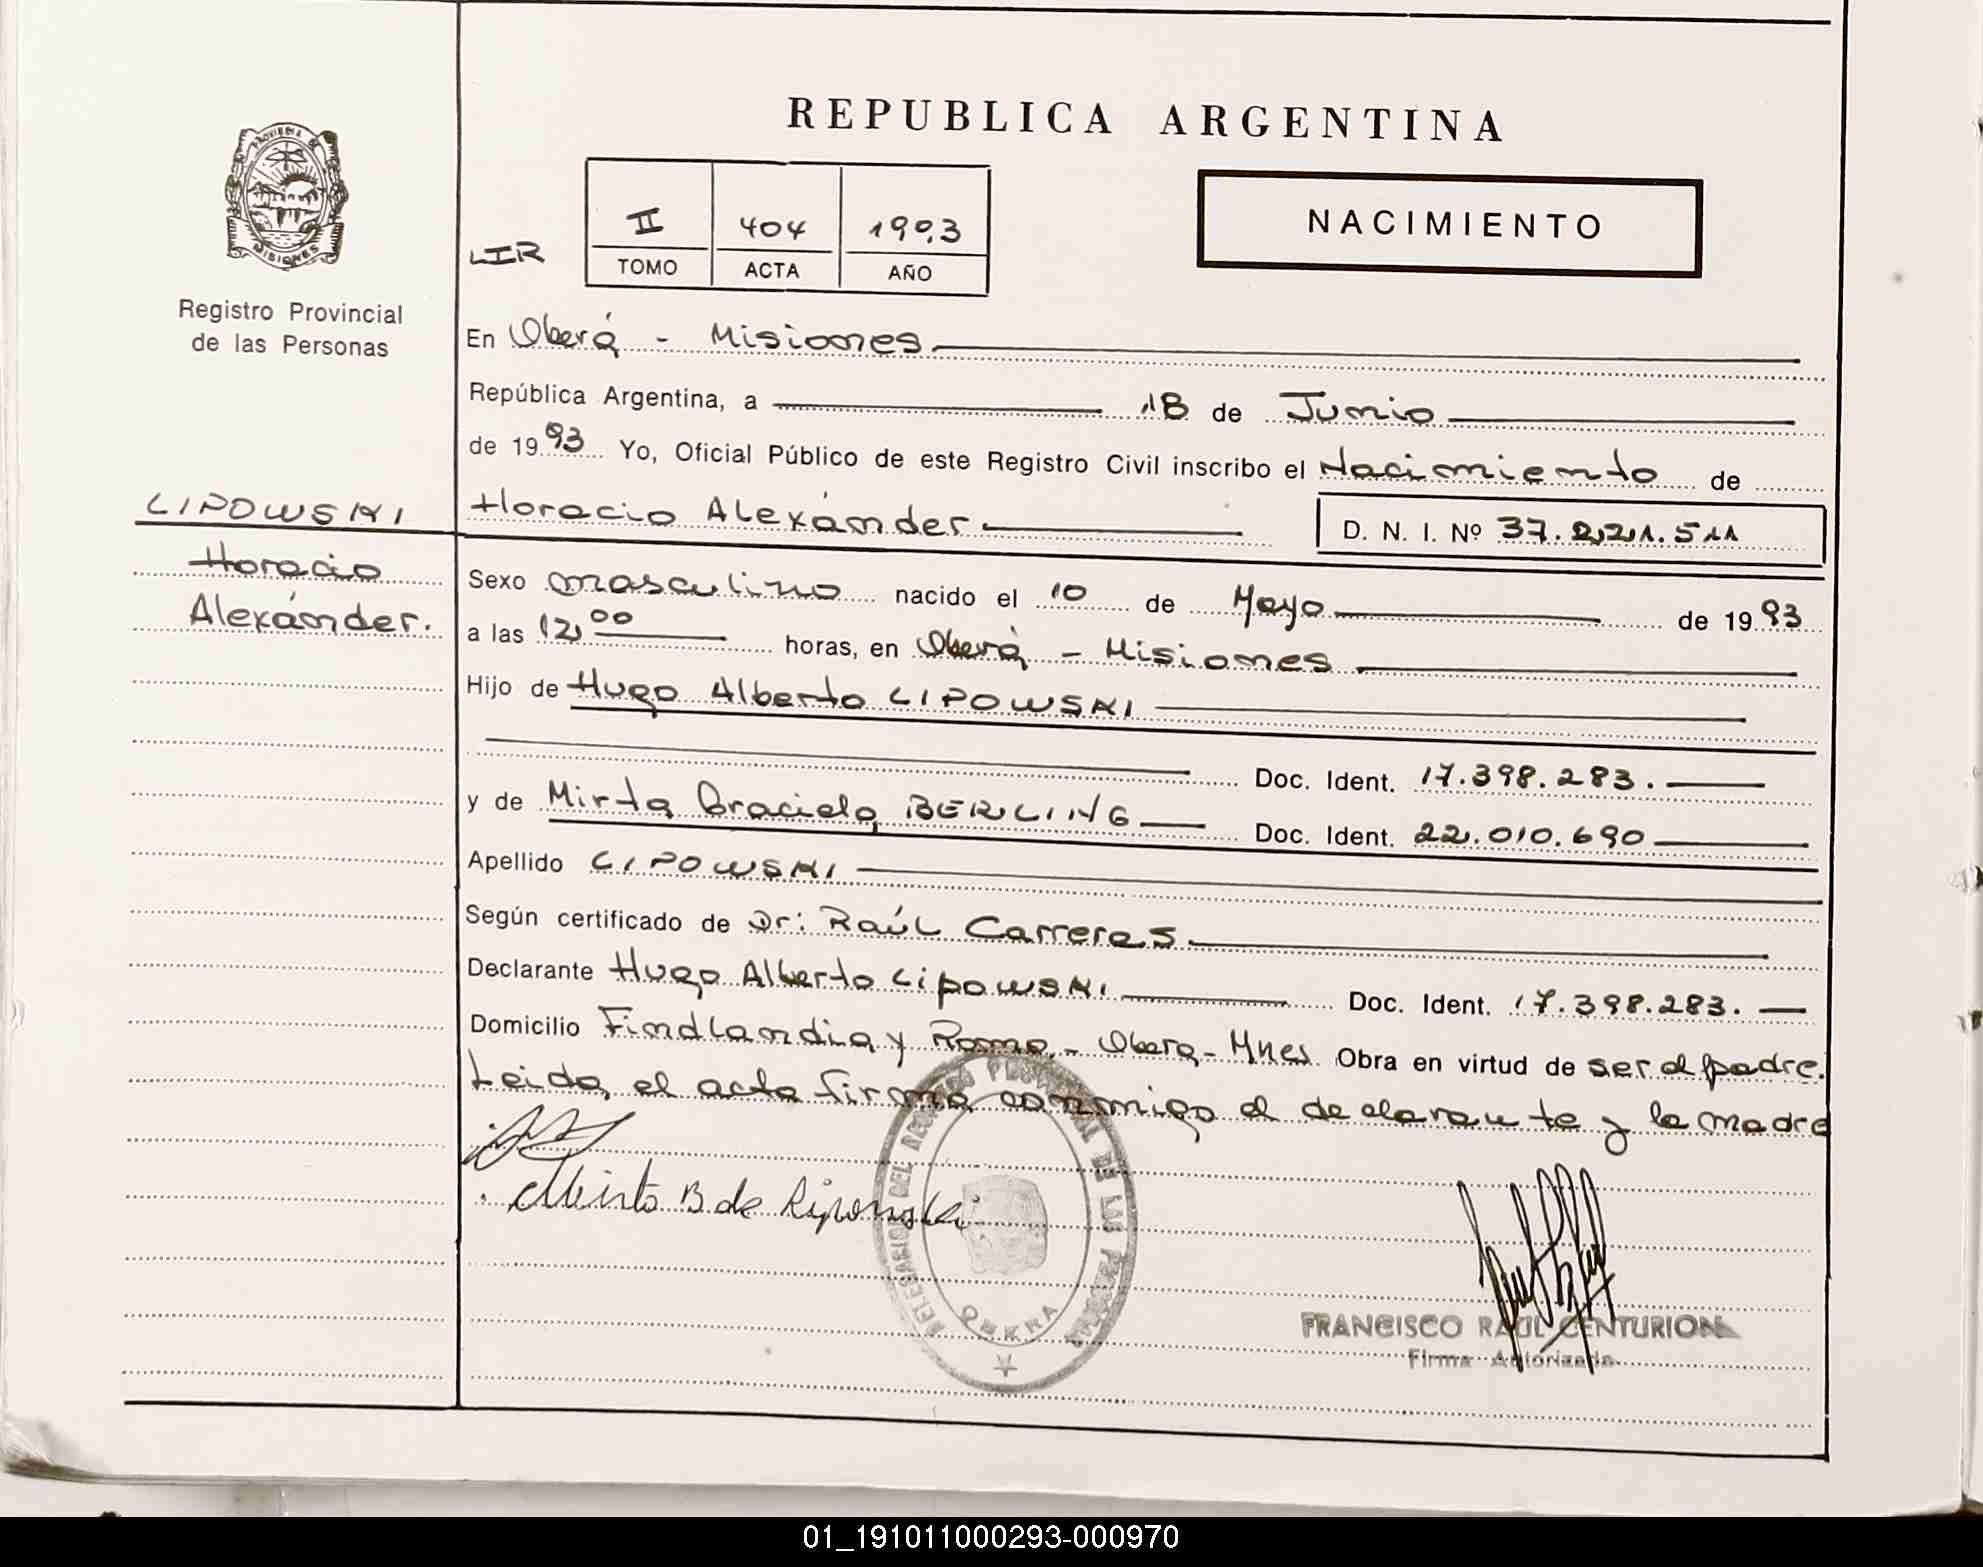 REPUBLICA ARGENTINA
PROVINCIA DE
MISIONES
Registro Provincial
de las Personas
LIR
II 404 1993
TOMO ACTA AÑO
NACIMIENTO
En Oberá - Misiones
República Argentina, a 18 de Junio
de 1993 Yo, Oficial Público de este Registro Civil inscribo el Nacimiento de
LIPOWSKI
Horacio
Alexánder.
Horacio Alexánder D. N. I. Nº 37.221.511
Sexo masculino nacido el 10 de Mayo de 1993
a las 12,00 horas, en Oberá - Misiones
Hijo de Hugo Alberto LIPOWSKI
Doc. Ident. 17.398.283.
y de Mirta Graciela BERLING Doc. Ident. 22.010.690
Apellido LIPOWSKI
Según certificado de Dr: Raúl Carreras
Declarante Hugo Alberto Lipowski Doc. Ident. 17.398.283.
Domicilio Findlandia y Roma.- Obera - Mnes. Obra en virtud de ser el padre.
Leida el acta firma conmigo el declarante y la madre
Mirta B de Lipowski
DELEGACION DEL REGISTRO PROVINCIAL DE LAS PERSONAS
OBERA
FRANCISCO RAUL CENTURION
Firma Autorizada
01_191011000293-000970